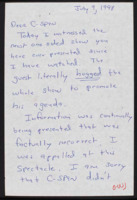 July 9, 1998
Dear C-Span
Today I witnessed the
most one sided show you
have ever presented since
I have watched. The
guest literally hugged the
whole show to promote
his agenda.
Information was continually
being presented that was
factually incorrect. I
was appalled at this
spectacle. I am sorry
that C-Span didn't